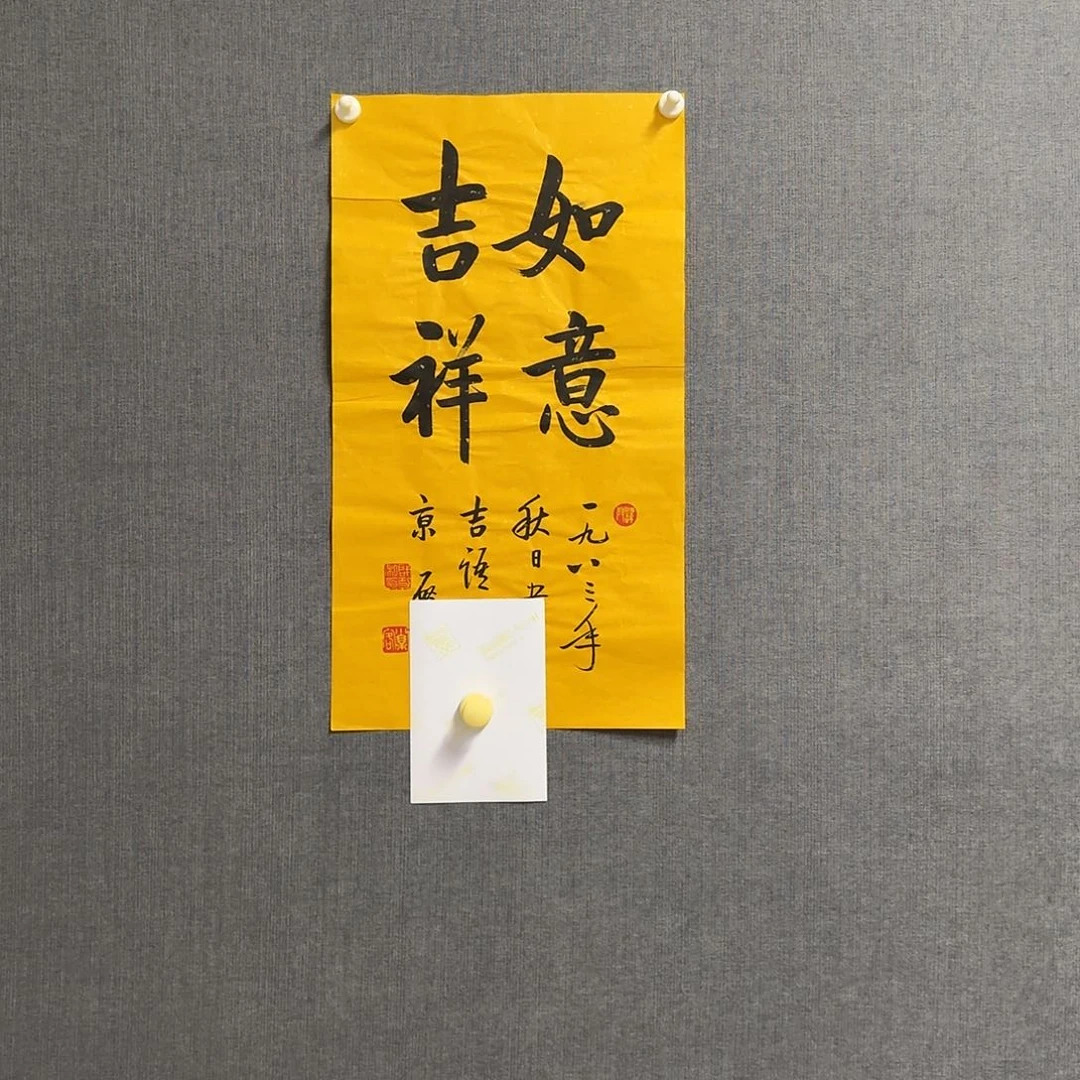 如意
吉祥
一九八三年
秋日
吉語
京